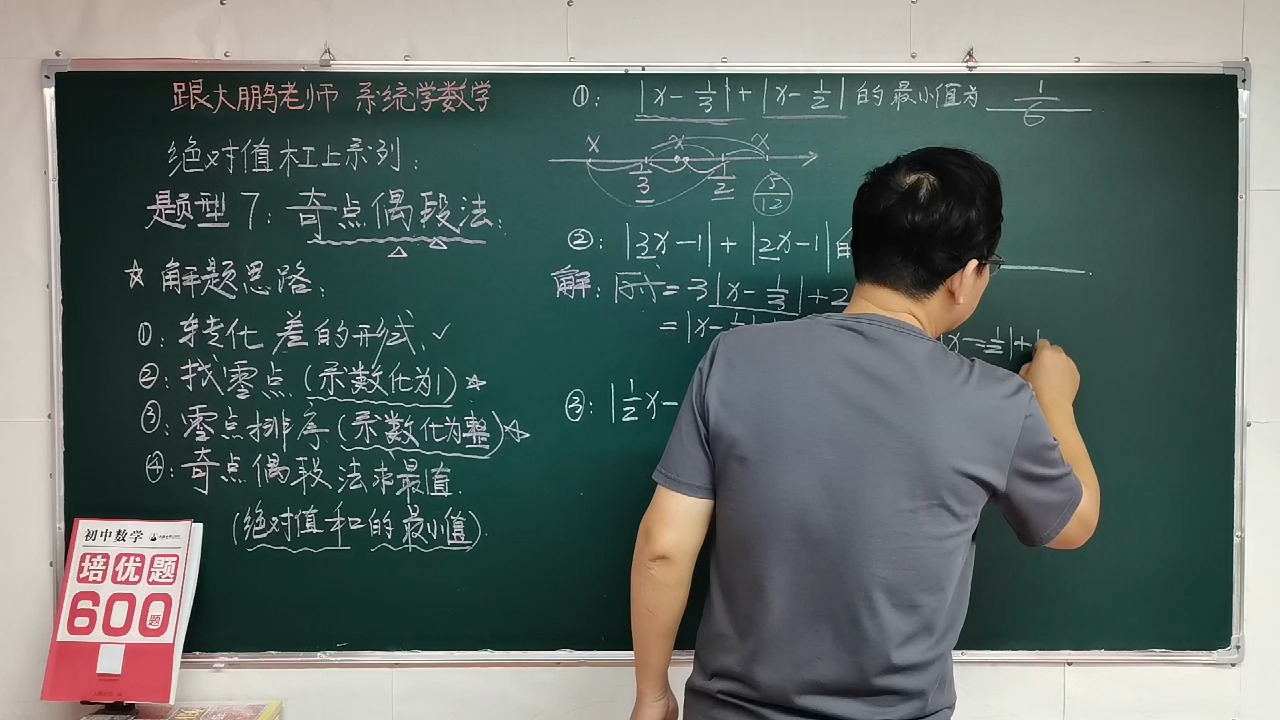 跟大鹏老师 系统学数学
绝对值杠上系列:
题型7:奇点偶段法:
☆解题思路:
①:转化 差的形式.✓
②:找零点(系数化为1)☆
③:零点排序(系数化为整)☆
④:奇点偶段法求最值.
(绝对值和的最小值).
①: |x-1/3|+|x-1/2|的最小值为 1/6
x x x
1/3 1/2 5/12
②: |3x-1|+|2x-1|的
解:原式=3|x-1/3|+2
=|x-
x-1/2|+
③: |1/2x-
初中数学
培优题
600题